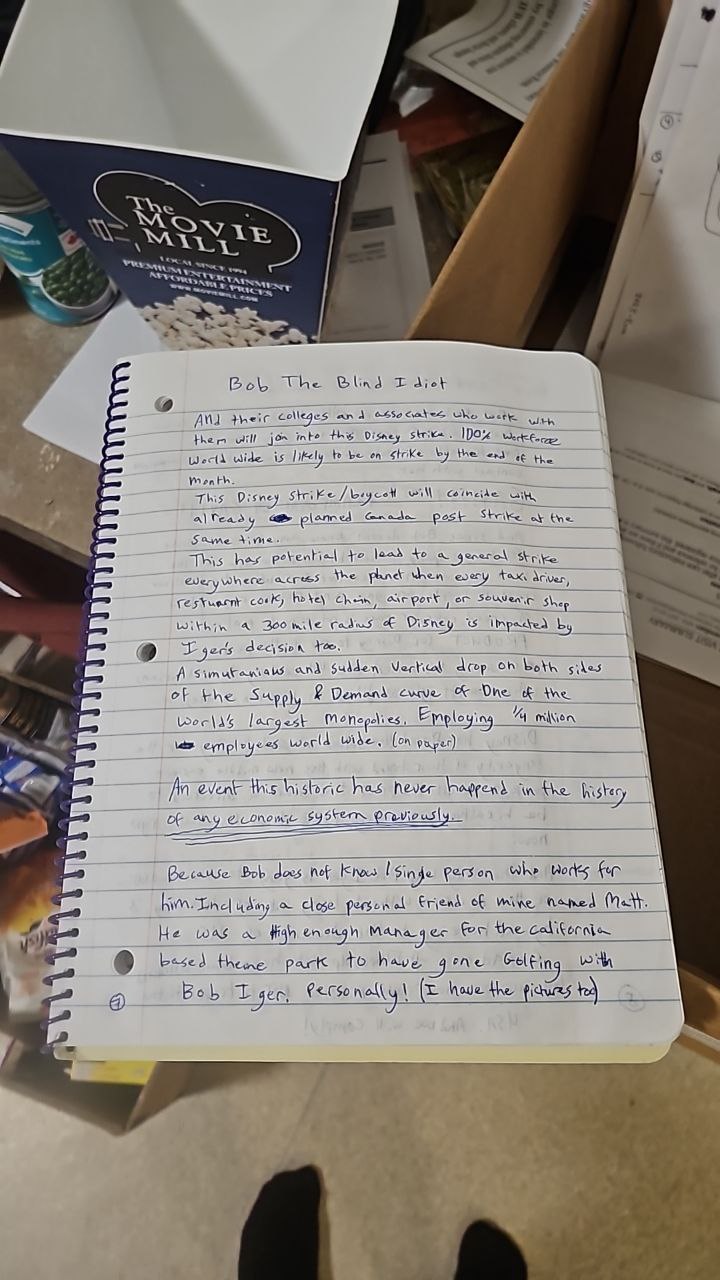 The
MOVIE
MILL
LOCAL SINCE 1994
PREMIUM ENTERTAINMENT
AFFORDABLE PRICES
WWW.MOVIEMILL.COM
Bob The Blind Idiot
And their colleges and associates who work with
them will join into this Disney strike. 100% workforce
World wide is likely to be on strike by the end of the
month.
This Disney strike/boycott will coincide with
already planned Canada post strike at the
same time.
This has potential to lead to a general strike
everywhere across the planet when every taxi driver,
resturnt cook, hotel chain, airport, or souvenir shop
within a 300 mile radius of Disney is impacted by
Iger's decision too.
A simutanious and sudden vertical drop on both sides
of the Supply & Demand curve of One of the
World's largest monopolies. Employing 1/4 million
employees world wide. (on paper)
An event this historic has never happend in the history
of any economic system previously.
Because Bob does not know 1 single person who works for
him. Including a close personal friend of mine named Matt.
He was a High enough manager for the california
based theme park to have gone Golfing with
Bob Iger. Personally! (I have the pictures too)
VISIT SUMMARY